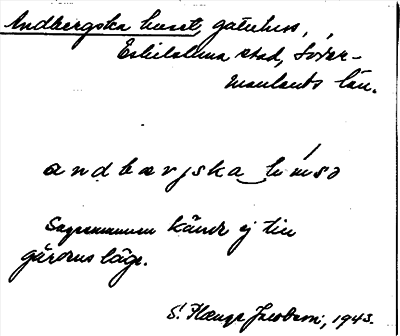 Andbergska huset, gatuhus,
Eskilstuna stad, Söder-
manlands län.
andbærjska húsə
Sagesmannen känner ej till
gårdens läge.
S. Hauge Jacobson, 1943.